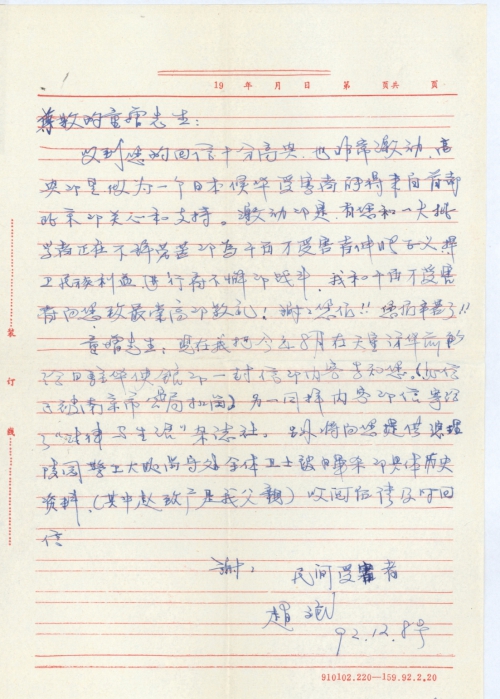 19 年 月 日 第 页共 页
尊敬的童増先生：
收到您的回信十分高兴，也非常激动，高
兴的是做为一个日本侵华受害者能得来自首都
北京的关心和支持。激动的是有您和一大批
学者正在不辞劳苦的为千百万受害者伸张正义捍
卫民族利益进行着不懈的战斗，我和千百万受害
者向您致最崇高的敬礼！谢谢您们!! 您们辛苦了!!
童增先生：现在我把今年8月在大量
给日驻华使馆的一封信的内容寄给您。(此信
被南京市公局扣留) 另一同样内容的信寄给
了“法律与生活”杂志社。另外将向您提供总理
陵园警卫大队尚守处全体卫士被日军杀的具体历史
资料，(其中赵致广是我父亲) 收阅后请及时回
信
谢！
民间受害者
赵
92.12.8号
装
订
线
910102.220—159.92.2.20